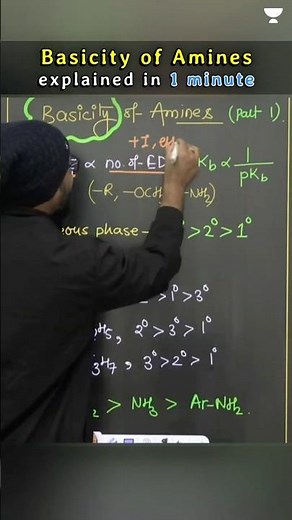 Basicity of Amines
explained in 1 minute
Basicity of Amines (part 1).
+I,
∝ no. of ED Kb ∝ 1/pKb
(-R, -OCH -NH2)
eous phase - >2°>1°
>1°>3°
H5, 2°>3°>1°
3H7, 3°>2°>1°
2 > NH3 > Ar-NH2.